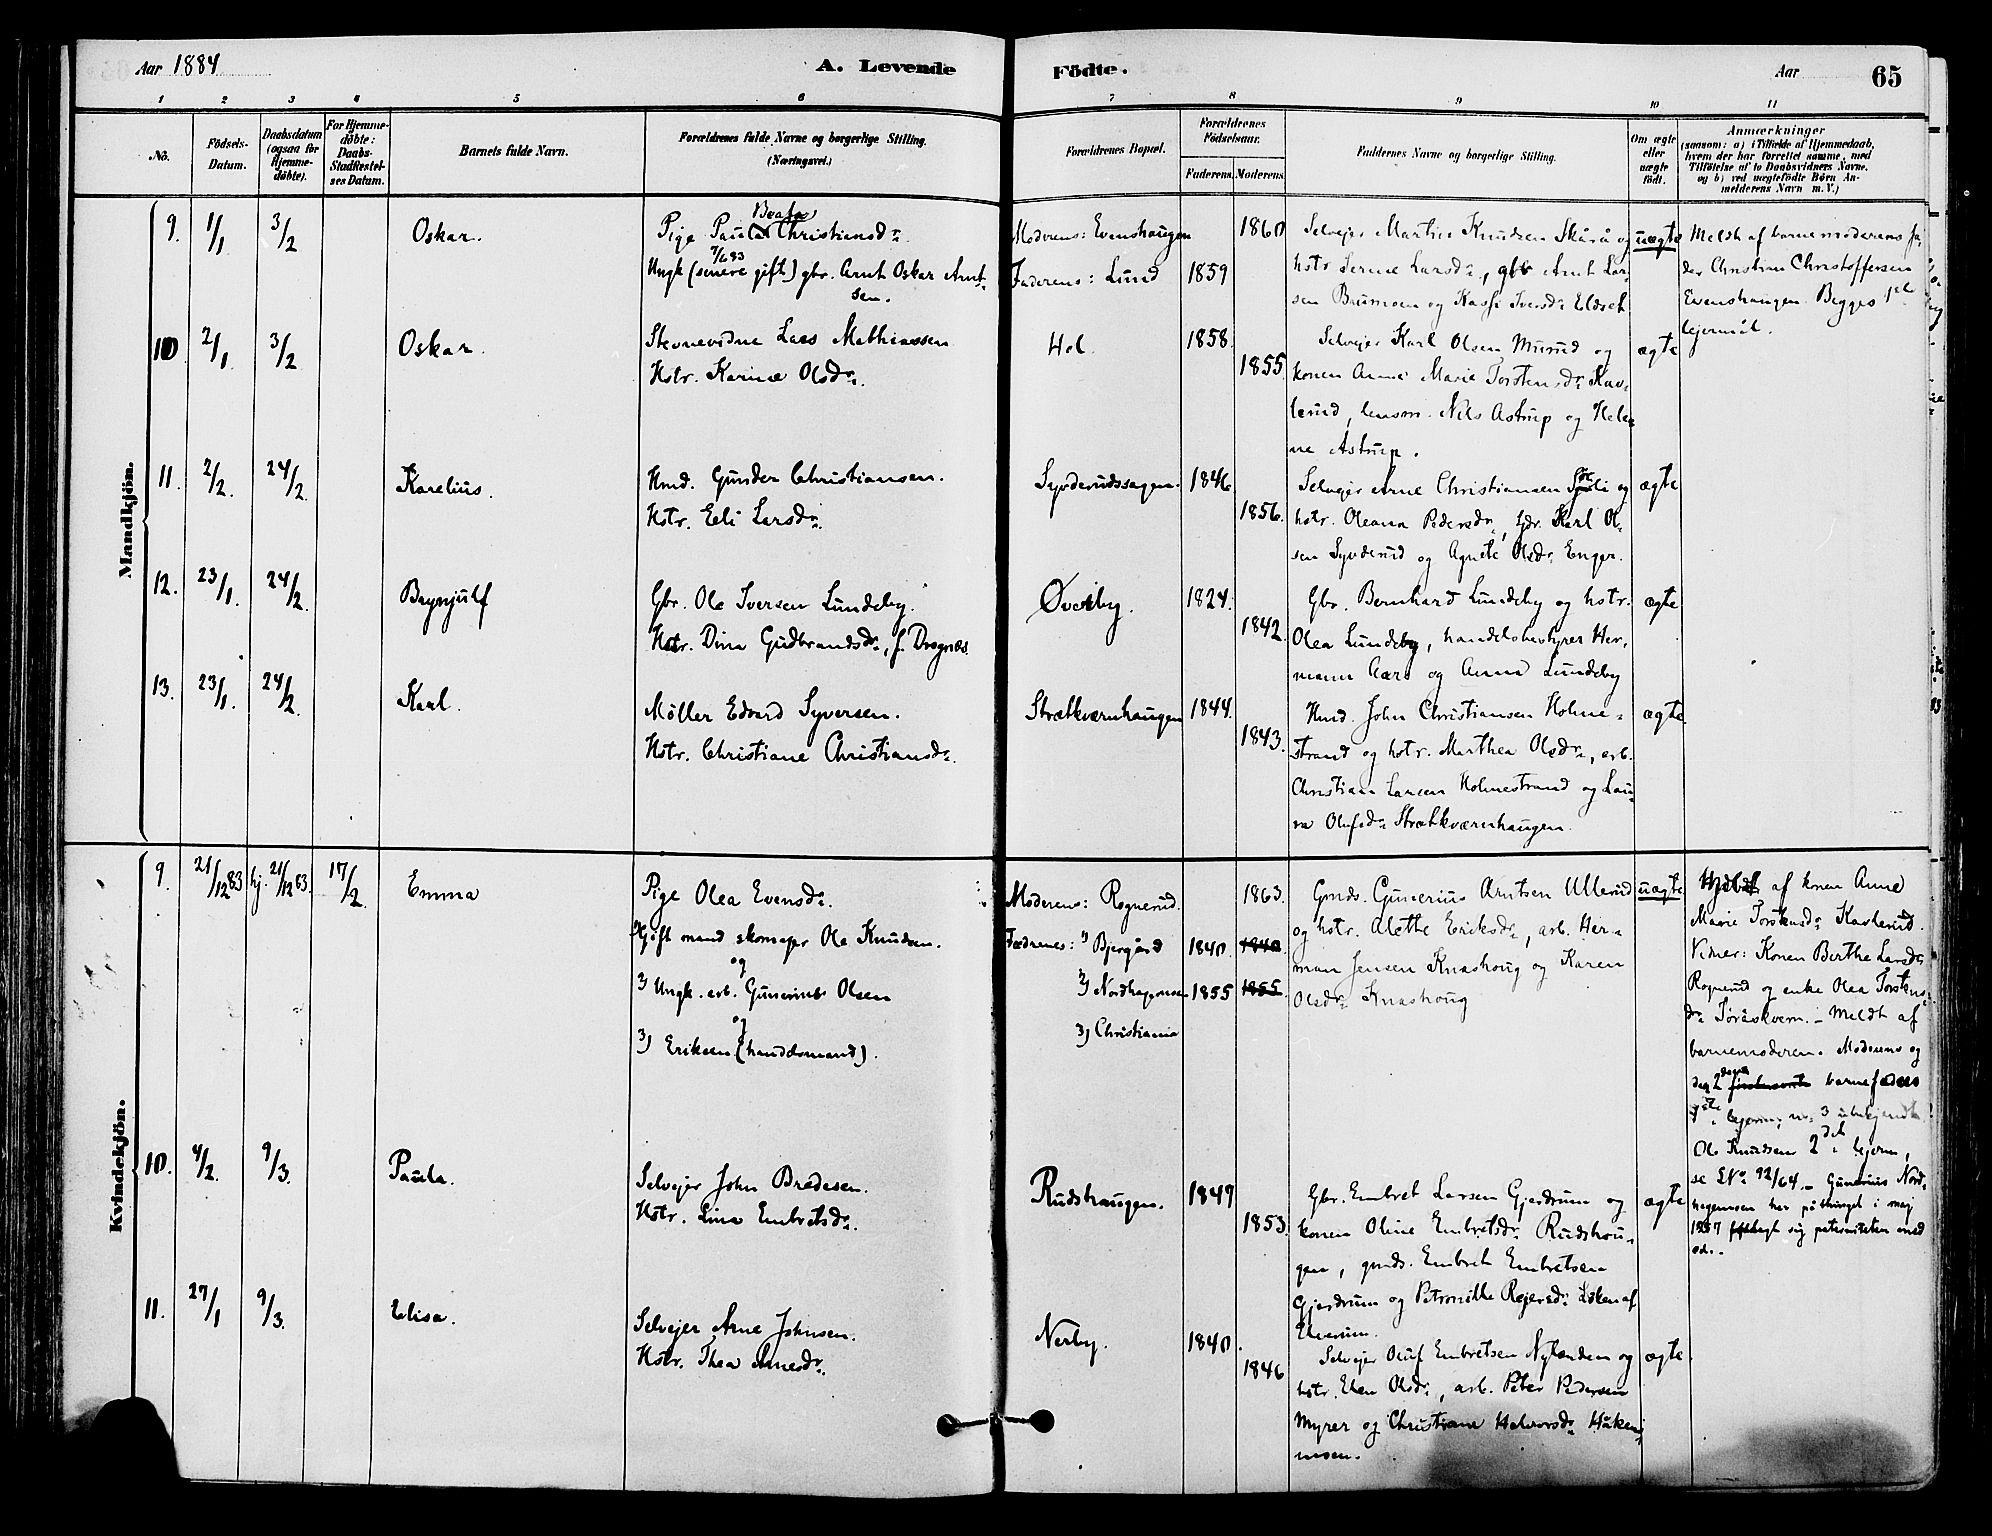 Aar 1884
A. Levende
Födte.
Aar
65
1 2 3 4 5 6 7 8 9 10 11
No.
Födsels-
Datum.
Daabsdatum
(ogsaa for
Hjemme-
döbte).
For Hjemme-
döbte:
Daabs-
Stadfæstel-
ses Datum.
Barnets fulde Navn.
Forældrenes fulde Navne og borgerlige Stilling.
(Næringsvei.)
Forældrenes Bopæl.
Forældrenes
Födselsaar.
Faderens. Moderens.
Faddernes Navne og borgerlige Stilling.
Om ægte
eller
uægte
födt.
Anmærkninger
(saasom: a) i Tilfælde af Hjemmedaab,
hvem der har forrettet samme, med
Tilföielse af to Daabsvidners Navne,
og b) ved uægtefödte Börn An-
melderens Navn m. V.)
Mandkjön.
9. 1/1 3/2
Oskar.
Beate
Pige Paula Christiansdr.
7/6 83
Ungk (senere gift) gbr. Arnt Oskar Arnt-
sen.
Moderens: Evenshaugen
Faderens: Lund
1859
1860
Selvejer Martin Knudsen Skårå og
hstr. Serine Larsdr., gbr Arnt Lar-
sen Brumoen og Kasse Iversdr. Eldset
uægte
Meldt af barnemoderens fa-
der Christian Christoffersen
Evenshaugen. Begges 1ste
lejermål.
10 2/1 3/2
Oskar.
Stevnevidne Lars Mathiassen
Hstr. Karine Olsdr.
Hol.
1858.
1855.
Selvejer Karl Olsen Murud og
konen Anne Marie Torstensdr. Kav-
lerud, lensm. Nils Astrup og Hele-
ne Astrup.
ægte
11. 2/2. 24/2.
Karelius.
Hmd. Gunder Christiansen.
Hstr. Eli Larsdr.
Syvderudssagen.
1846
1856.
Selvejer Arne Christiansen og
hstr. Oleana Pedersdr., Gdr. Karl Ol-
sen Syvderud og Agnete Olsdr. Enger.
ægte
12. 23/1. 24/2.
Brynjulf
Gbr. Ole Iversen Lundeby.
Hstr. Dina Gudbrandsdr., f. Dragnæs.
Øverby.
1824.
1842.
Gbr. Bernhard Lundeby og hstr.
Olea Lundeby, handelsbestyrer Her-
mann Aars og Anna Lundeby
ægte
13. 23/1. 24/2.
Karl.
Møller Edvard Syversen.
Hstr. Christiane Christiansdr.
Strætkværnhaugen
1844.
1843.
Hmd. John Christiansen Holme-
strand og hstr. Marthea Olsdr., arb.
Christian Larsen Holmestrand og Lau-
ra Olufsdr. Strætkværnhaugen.
ægte
Kvindekjön.
9. 21/12 83 hj. 21/12 83. 17/2
Emma
Pige Olea Evensdr.
Gift mand skomager Ole Knudsen.
og
2) Ungk. arb. Gunerius Olsen
og
3) Eriksen (handelsmand).
Moderens: Rognerud.
Fædrenes: 1) Bjergård
2) Nordhagemoen
3) Christiania
1840.
1855
1863.
1840
1855.
Gmds. Gunerius Arntsen Ullerud
og hstr. Alethe Eriksdr., arb. Her-
man Jensen Knashoug og Karen
Olsdr. Knashoug
uægte
Hjdøbt af konen Anne
Marie Torstensdr. Kavlerud.
Vidner: Konen Berthe Larsdr.
Rognerud og enke Olea Torstens-
dr. – Meldt af
barnemoderen. Moderens og
den 2den barnefaders
1ste lejerm; no. 3 ubekjendt
Ole Knudsen 2det lejerm,
se LNo. 92/64. – Gunerius Nord-
hagemoen har på thinget i maj
1887 fralagt sig paterniteten med
ed. –
10. 4/2. 9/3.
Paula.
Selvejer John Bredesen.
Hstr. Lina Embretsdr.
Rudshaugen.
1849
1853.
Gbr. Embret Larsen Gjerdrum og
konen Oline Embretsdr. Rudshau-
gen, gmds. Embret Embretsen
Gjerdrum og Petronille Rejersdr. Løken af
Elverum.
ægte
11. 27/1 9/3.
Elisa.
Selvejer Arne Johnsen.
Hstr. Thea Arnesdr.
Nerby.
1840.
1846
Selvejer Oluf Embretsen Nylænden og
hstr. Elen Olsdr., arb. Peter Pedersen
Myrer og Christiane Halvorsdr. Håken-
moen.
ægte.